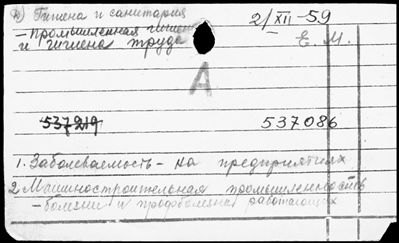 Гигиена и санитария
2/XII-59
- промышленная гигиена
и гигиена труда
Е. М.
А
537219
537086
1. Заболеваемость - на предприятиях
2. Машиностроительная промышленность
- болезни и профболезни работающих